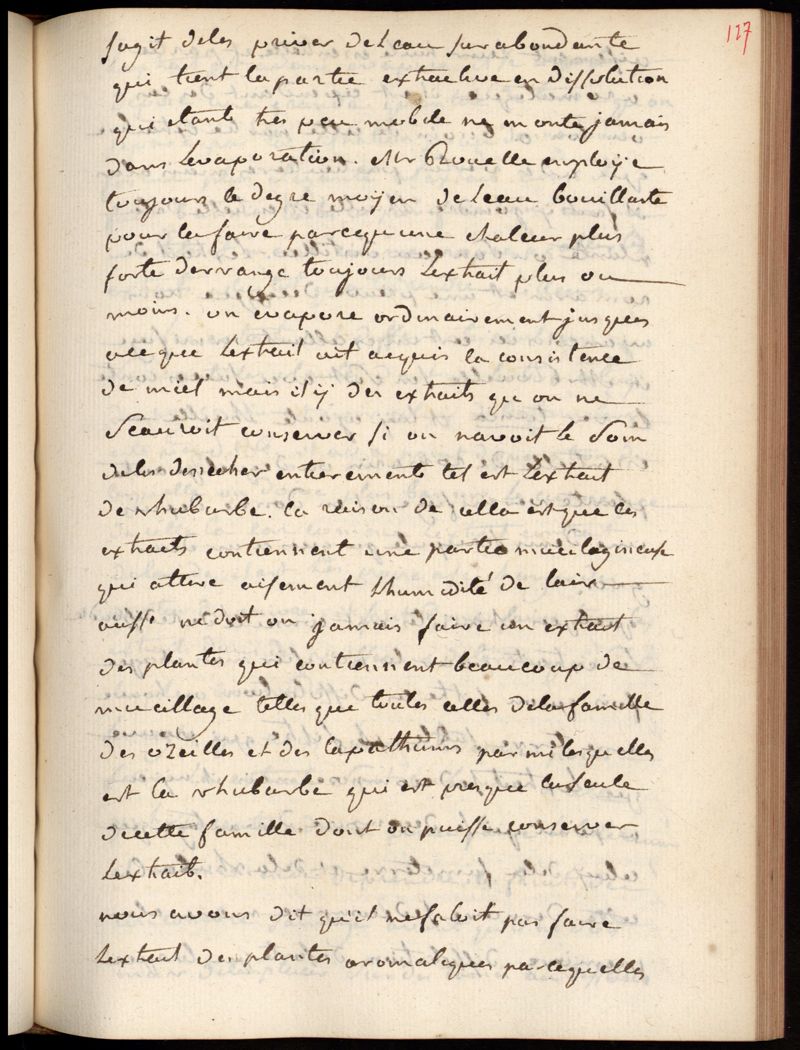 127
sagit deles priver deLeau surabondante
qui tient lapartie extractive en dissolution
qui etant tres peu mobile ne monte jamais
dans Levaporation. Mr Rouelle employe
toujours le degre moyen deLeau bouillante
pour lafaire parcequ une chaleur plus
forte derrange toujours Lextrait plus ou
moins. on evapore ordinairement jusques
aceque Lextrait ait acquis la consistence
de miel mais il y des extraits qu on ne
Scauroit conserver si on navoit le Soin
deles dessecher entierement tel est Lextrait
de rhubarbe. la raison de cella est que les
extraits contiennent une partie mucilagineuse
qui attire aisement Lhumidité de lair
aussi ne doit on jamais faire un extrait
des plantes qui contiennent beaucoup de
mucillage telles que toutes celles dela famille
des ozeilles et des lapathums parmi lesquelles
est la rhubarbe qui est presque laseule
decette famille dont on puisse conserver
Lextrait.
nous avons dit qu'il nefaloit pas faire
Lextrait des plantes aromatiques parcequelles